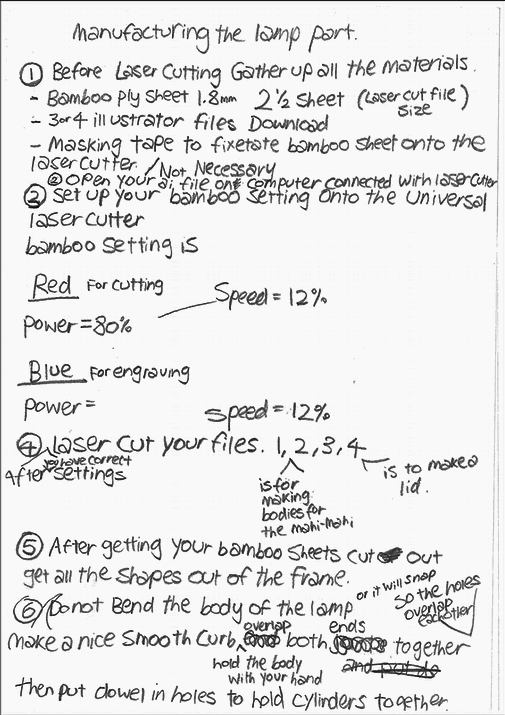 manufacturing the lamp part.
① Before Laser Cutting Gather up all the Materials.
- Bamboo Ply Sheet 1.8mm 2 1/2 Sheet (Laser cut file) size
- 3 or 4 illustrator files Download
- Masking tape to fixetate bamboo sheet onto the
laser cutter. / Not Necessary
② Open your ai file one computer connected with laser cutter
② Set up your bamboo Setting Onto the Universal
laser cutter
bamboo setting is
Red For cutting
Speed = 12%
power = 80%
Blue For engraving
power =
Speed = 12%
④ laser cut your files. 1, 2, 3, 4
After you have correct settings
is for
making
bodies for
the mahi-mahi
is to make a
lid.
⑤ After getting your bamboo Sheets cut out
get all the shapes out of the frame.
⑥ Do not Bend the body of the lamp or it will snap
So the holes
overlap
eachother
make a nice Smooth Curb, overlap both ends together
hold the body
with your hand
then put dowel in holes to hold cylinders together.